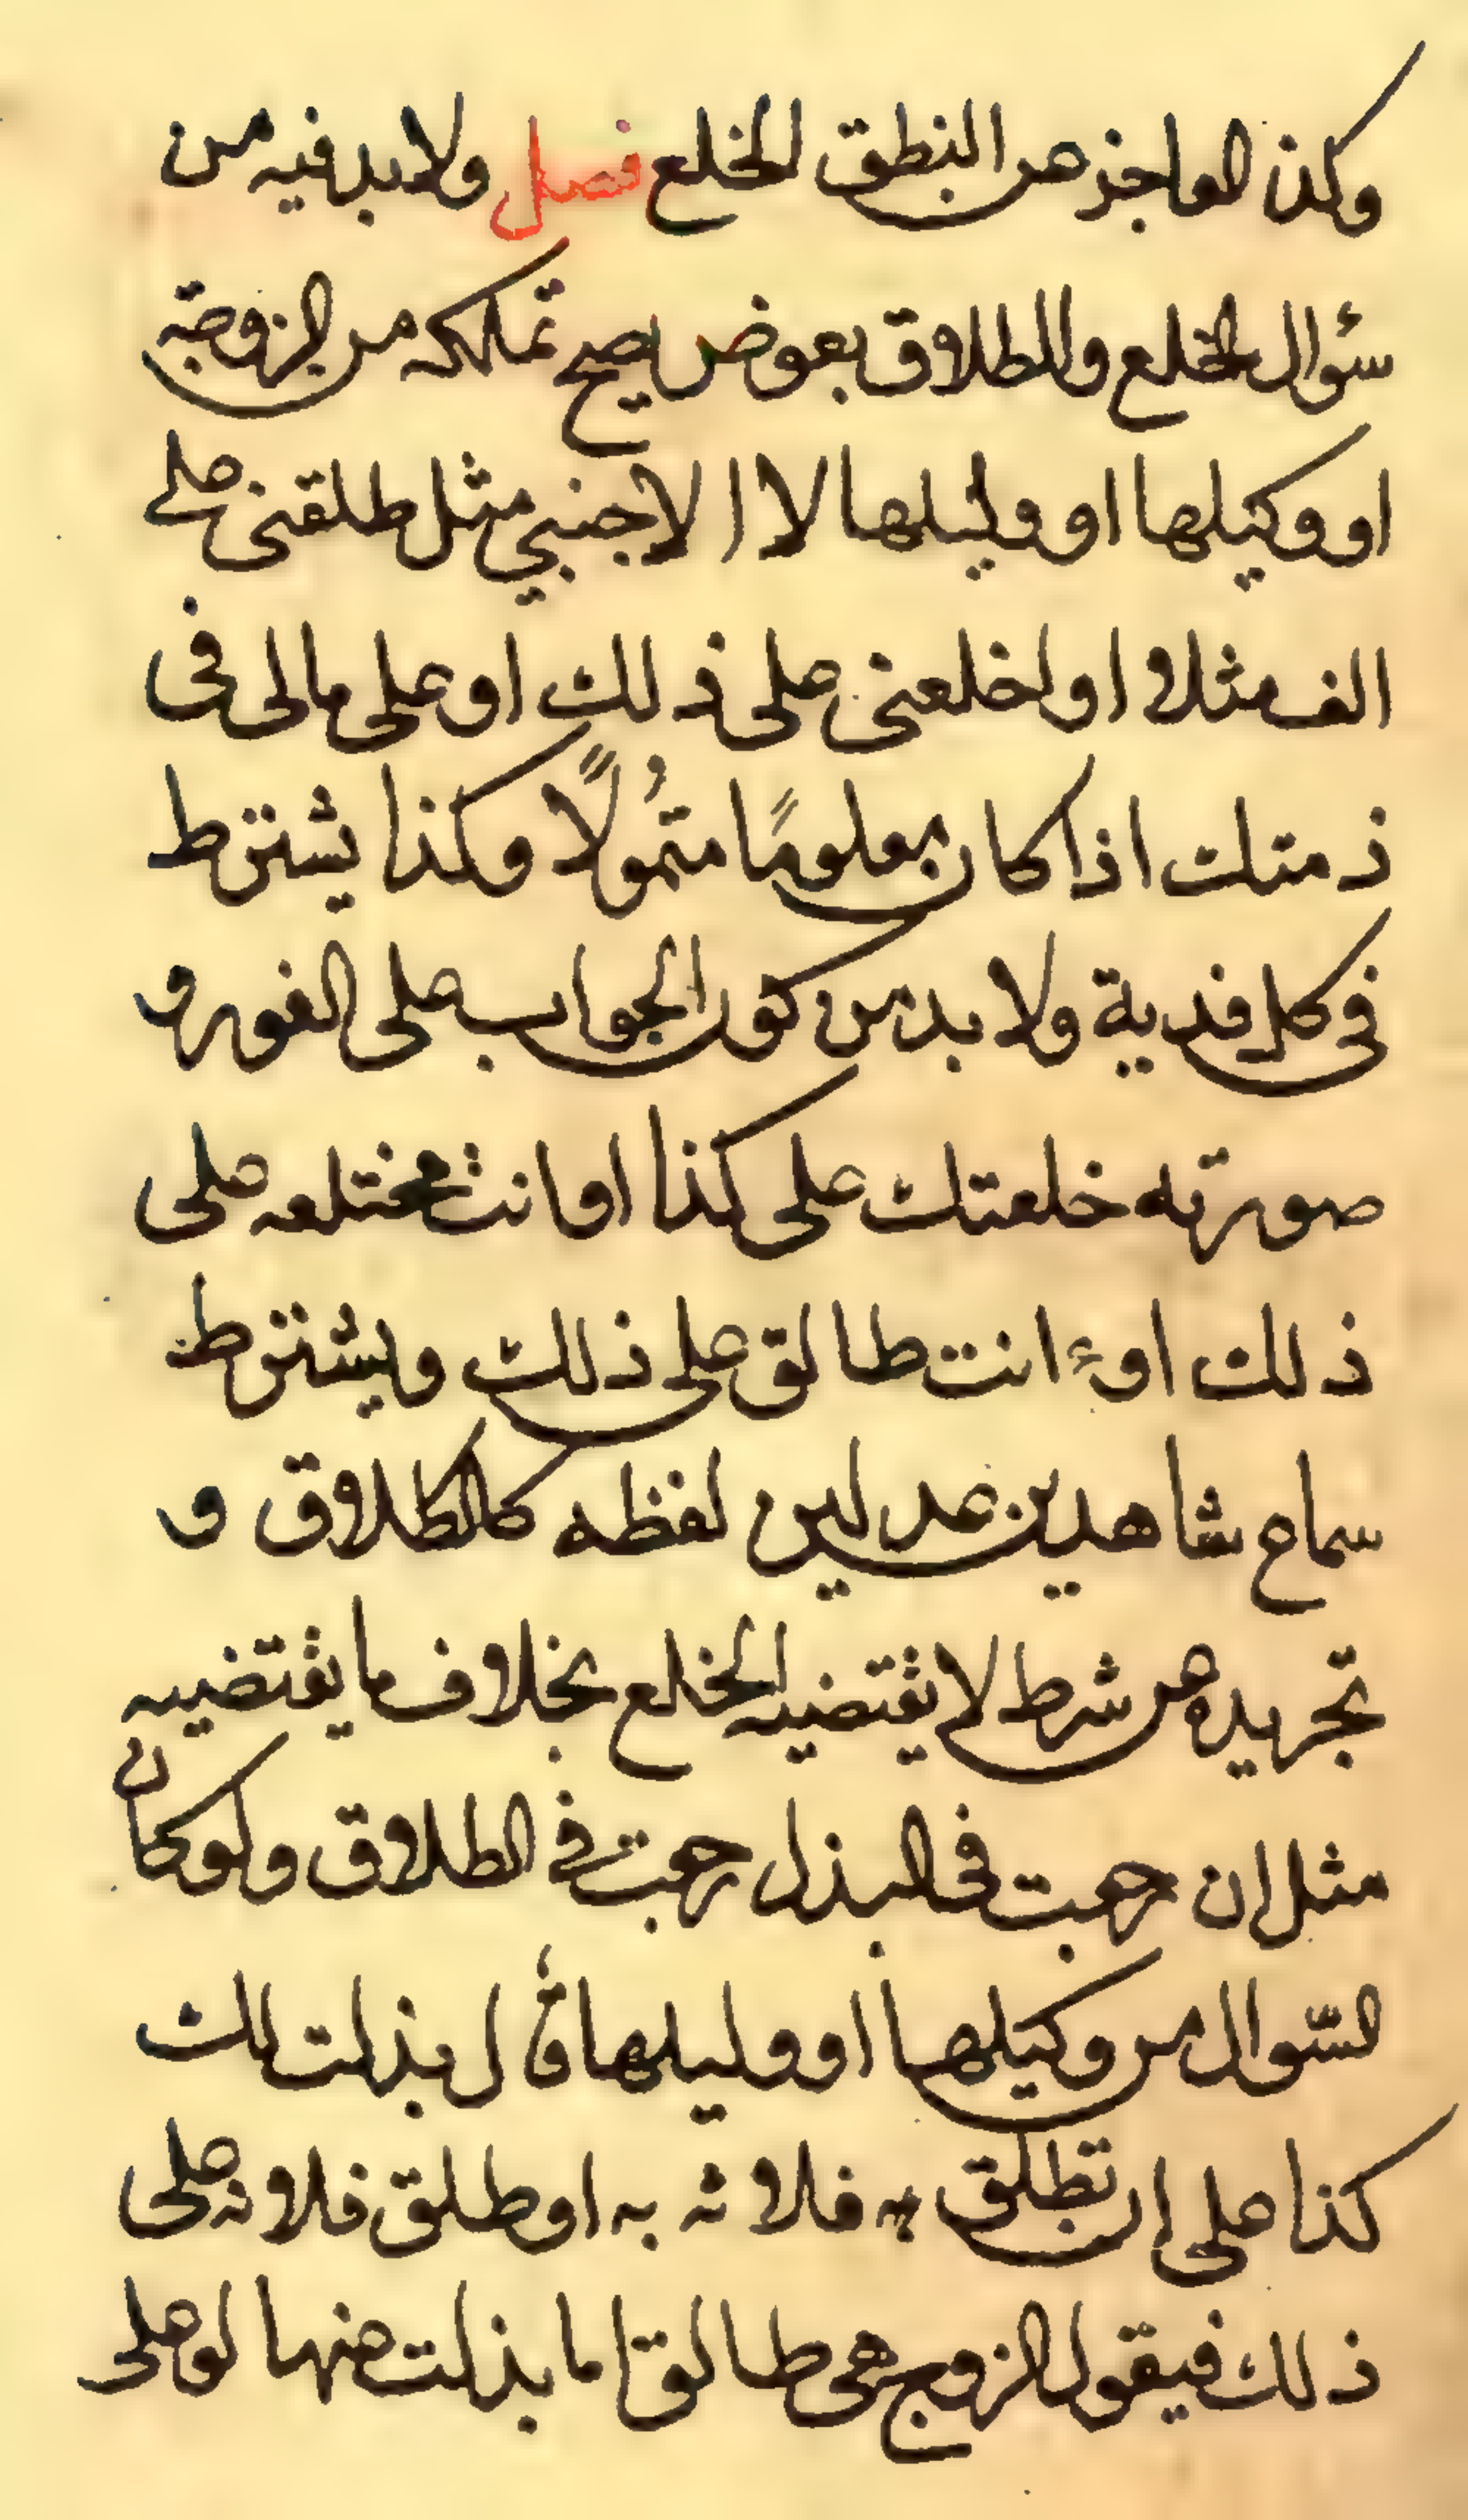 وكذ العاجز عن النطق الخلع فصل ولا بد فيه من
سؤال الخلع والطلاق بعوض يصح تملكه من الزوجة
او وكيلها او وليلها لا ا لاجنبي مثل طلقنى على
الف مثلا او اخلعنى على ذلك او على مالى فى
ذمتك اذا كان معلومًا متمُولًا وكذا يشترط
فى كل فدية ولا بد من كون الجواب على الفور و
صورته خلعتك على كذا او انت مختلعه على
ذلك او انت طالق على ذلك ويشترط
سماع شاهدين عدلين لفظه كالطلاق و
تجريده من شرط لا يقتضيه الخلع بخلاف ما يقتضيه
مثل ان رجعت فى البذل رجعت فى الطلاق ولو كان
السّوال من وكيلها او وليلها قال بذلت لك
كذا على ان تطلق به فلانه به او طلق فلانه على
ذلك فيقول الزوج هى طالق ما بذلت عنها لو على